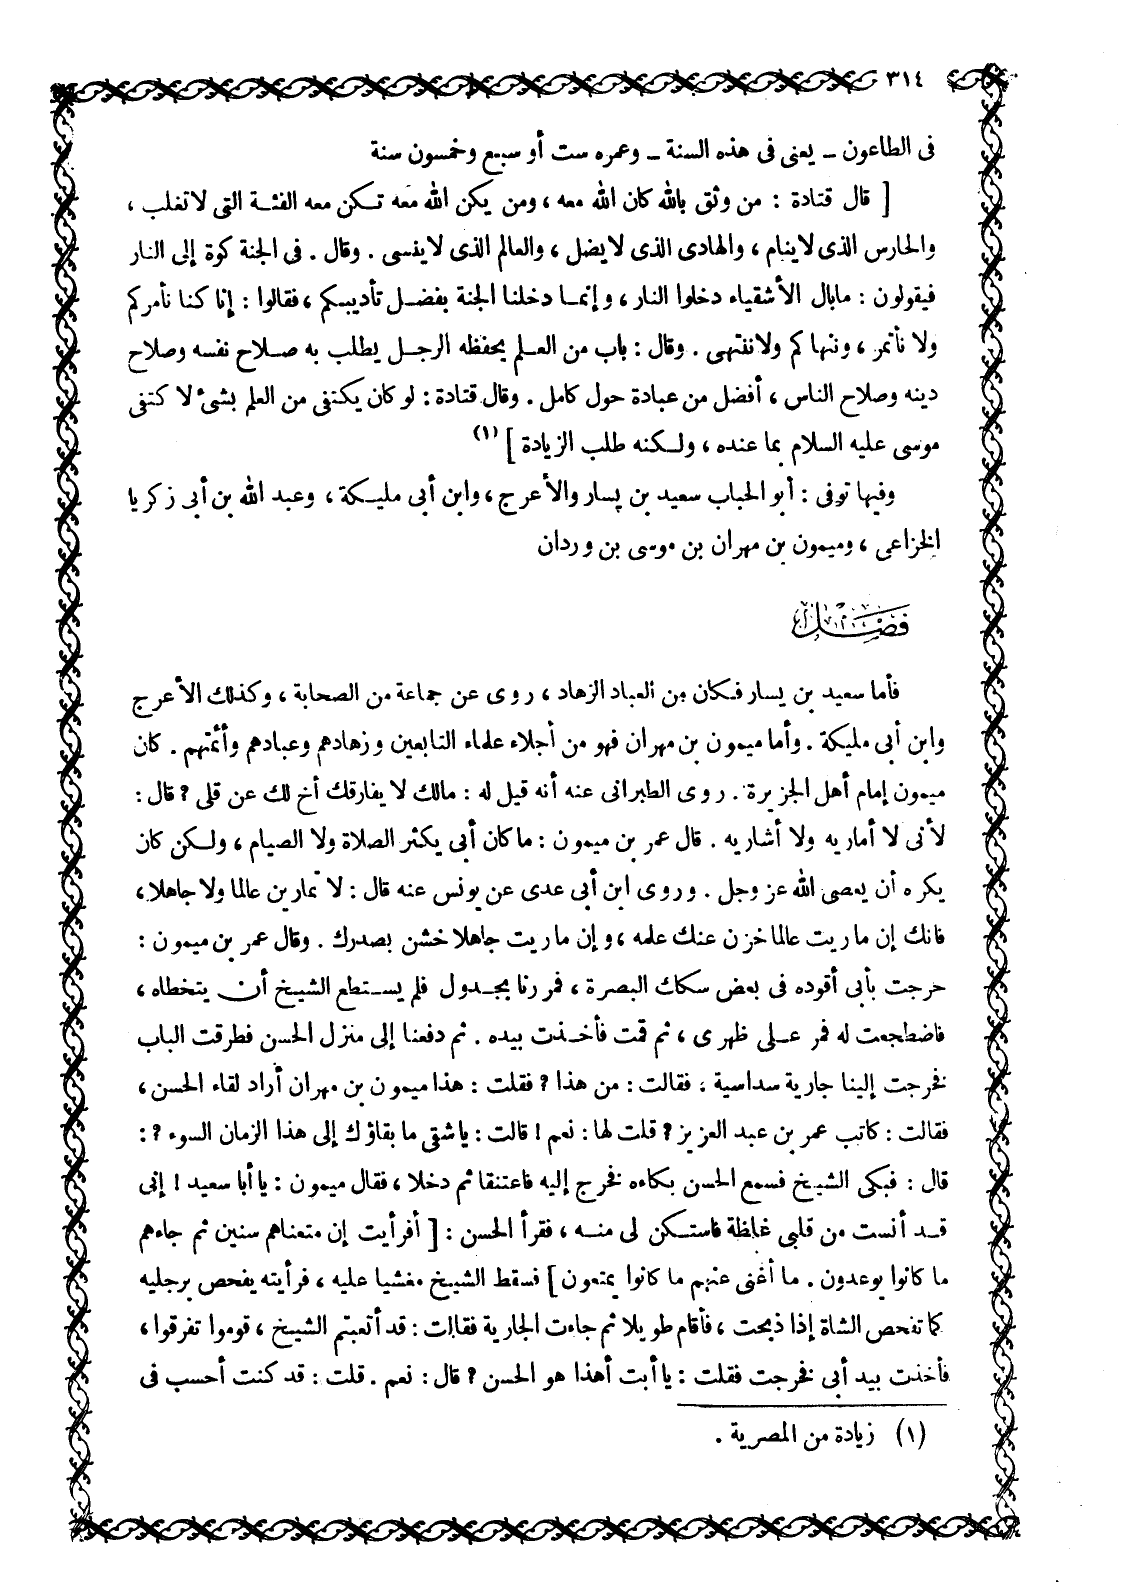 ٣١٤
فى الطاعون ــ يعنى فى هذه السنة ــ وعمره ست أو سبع وخمسون سنة
[ قال قتادة : من وثق بالله كان الله معه ، ومن يكن الله معه تكن معه الفئة التى لا تغلب ،
والحارس الذى لا ينام ، والهادى الذى لا يضل ، والعالم الذى لا ينسى . وقال . فى الجنة كوة إلى النار
فيقولون : مابال الأشقياء دخلوا النار ، وإنما دخلنا الجنة بفضل تأديبكم ، فقالوا : إنا كنا نأمركم
ولا نأتمر ، وننهاكم ولا ننتهى . وقال : باب من العلم يحفظه الرجل يطلب به صلاح نفسه وصلاح
دينه وصلاح الناس ، أفضل من عبادة حول كامل . وقال قتادة : لو كان يكتفى من العلم بشىء لا كتفى
موسى عليه السلام بما عنده ، ولكنه طلب الزيادة ] (١)
وفيها توفى : أبو الحباب سعيد بن يسار والأعرج ، وابن أبى مليكة ، وعبد الله بن أبى زكريا
الخزاعى ، وميمون بن مهران بن موسى بن وردان
فصل
فأما سعيد بن يسار فكان من العباد الزهاد ، روى عن جماعة من الصحابة ، وكذلك الأعرج
وابن أبى مليكة . وأما ميمون بن مهران فهو من أجلاء علماء التابعين وزهادهم وعبادهم وأئمتهم . كان
ميمون إمام أهل الجزيرة . روى الطبرانى عنه أنه قيل له : مالك لا يفارقك أخ لك عن قلى ؟ قال :
لأنى لا أماريه ولا أشاريه . قال عمر بن ميمون : ما كان أبى يكثر الصلاة ولا الصيام ، ولكن كان
يكره أن يعصى الله عز وجل . وروى ابن أبى عدى عن يونس عنه قال : لا تمارين عالما ولا جاهلا ،
فانك إن ماريت عالما خزن عنك علمه ، وإن ماريت جاهلا خشن بصدرك . وقال عمر بن ميمون :
خرجت بأبى أقوده فى بعض سكك البصرة ، فمررنا بجدول فلم يستطع الشيخ أن يتخطاه ،
فاضطجعت له فمر على ظهرى ، ثم قمت فأخذت بيده . ثم دفعنا إلى منزل الحسن فطرقت الباب
فخرجت إلينا جارية سداسية ، فقالت : من هذا ؟ فقلت : هذا ميمون بن مهران أراد لقاء الحسن ،
فقالت : كاتب عمر بن عبد العزيز ؟ قلت لها : نعم ! قالت : ياشقى ما بقاؤك إلى هذا الزمان السوء ؟ :
قال : فبكى الشيخ فسمع الحسن بكاءه فخرج إليه فاعتنقا ثم دخلا ، فقال ميمون : يا أبا سعيد ! إنى
قد أنست من قلبى غلظة فاستكن لى منه ، فقرأ الحسن : [ أفرأيت إن متعناهم سنين ثم جاءهم
ما كانوا يوعدون . ما أغنى عنهم ما كانوا يمتعون ] فسقط الشيخ مغشيا عليه ، فرأيته يفحص برجليه
كما تفحص الشاة إذا ذبحت ، فأقام طويلا ثم جاءت الجارية فقالت : قد أتعبتم الشيخ ، قوموا تفرقوا ،
فأخذت بيد أبى فخرجت فقلت : يا أبت أهذا هو الحسن ؟ قال : نعم . قلت : قد كنت أحسب فى
(١) زيادة من المصرية .